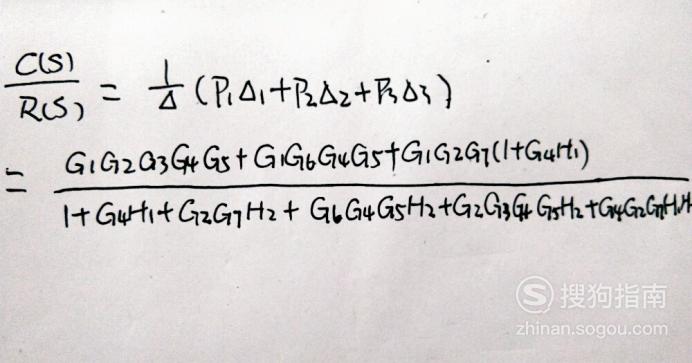 C(S)/R(S) = 1/Δ (P₁Δ₁+P₂Δ₂+P₃Δ₃)
= G₁G₂G₃G₄G₅+G₁G₆G₄G₅+G₁G₂G₇(1+G₄H₁)
1+G₄H₁+G₂G₇H₂+G₆G₄G₅H₂+G₂G₃G₄G₅H₂+G₄G₂G₇H₁H
搜狗指南
zhinan.sogou.com